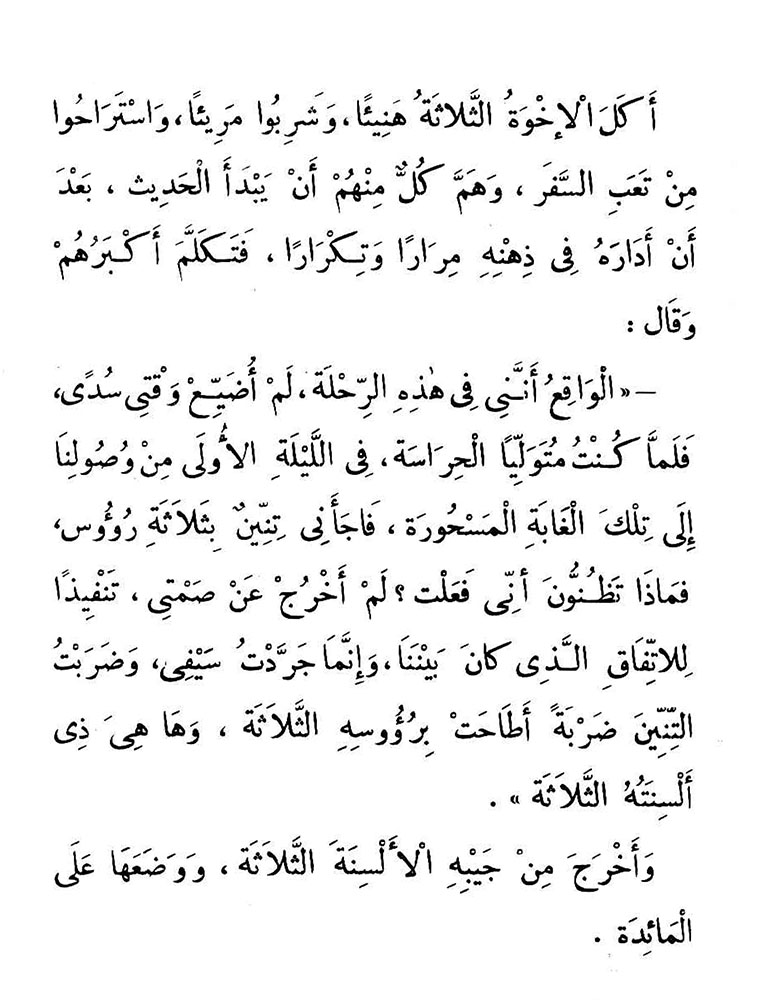 أَكَلَ الْإِخْوَةُ الثَّلَاثَةُ هَنِيئًا، وَشَرِبُوا مَرِيئًا، وَاسْتَرَاحُوا
مِنْ تَعَبِ السَّفَرِ، وَهَمَّ كُلٌّ مِنْهُمْ أَنْ يَبْدَأَ الْحَدِيث، بَعْدَ
أَنْ أَدَارَهُ فِى ذِهْنِهِ مِرَارًا وَتِكْرَارًا، فَتَكَلَّمَ أَكْبَرُهُمْ
وَقَال :
— « الْوَاقِعُ أَنَّنِى فِى هٰذِهِ الرِّحْلَة، لَمْ أُضَيِّعْ وَقْتِى سُدًى،
فَلَمَّا كُنْتُ مُتَوَلِّيًا الْحِرَاسَة، فِى اللَّيْلَةِ الْأُولَى مِنْ وُصُولِنَا
إِلَى تِلْكَ الْغَابَةِ الْمَسْحُورَة، فَاجَأَنِى تِنِّينٌ بِثَلَاثَةِ رُؤُوس،
فَمَاذَا تَظُنُّونَ أَنِّى فَعَلْت؟ لَمْ أَخْرُجْ عَنْ صَمْتِى، تَنْفِيذًا
لِلِاتِّفَاقِ الَّذِى كَانَ بَيْنَنَا، وَإِنَّمَا جَرَّدْتُ سَيْفِى، وَضَرَبْتُ
التِّنِّينَ ضَرْبَةً أَطَاحَتْ بِرُؤُوسِهِ الثَّلَاثَة، وَهَا هِىَ ذِى
أَلْسِنَتُهُ الثَّلَاثَة » .
وَأَخْرَجَ مِنْ جَيْبِهِ الْأَلْسِنَةَ الثَّلَاثَة، وَوَضَعَهَا عَلَى
الْمَائِدَة .